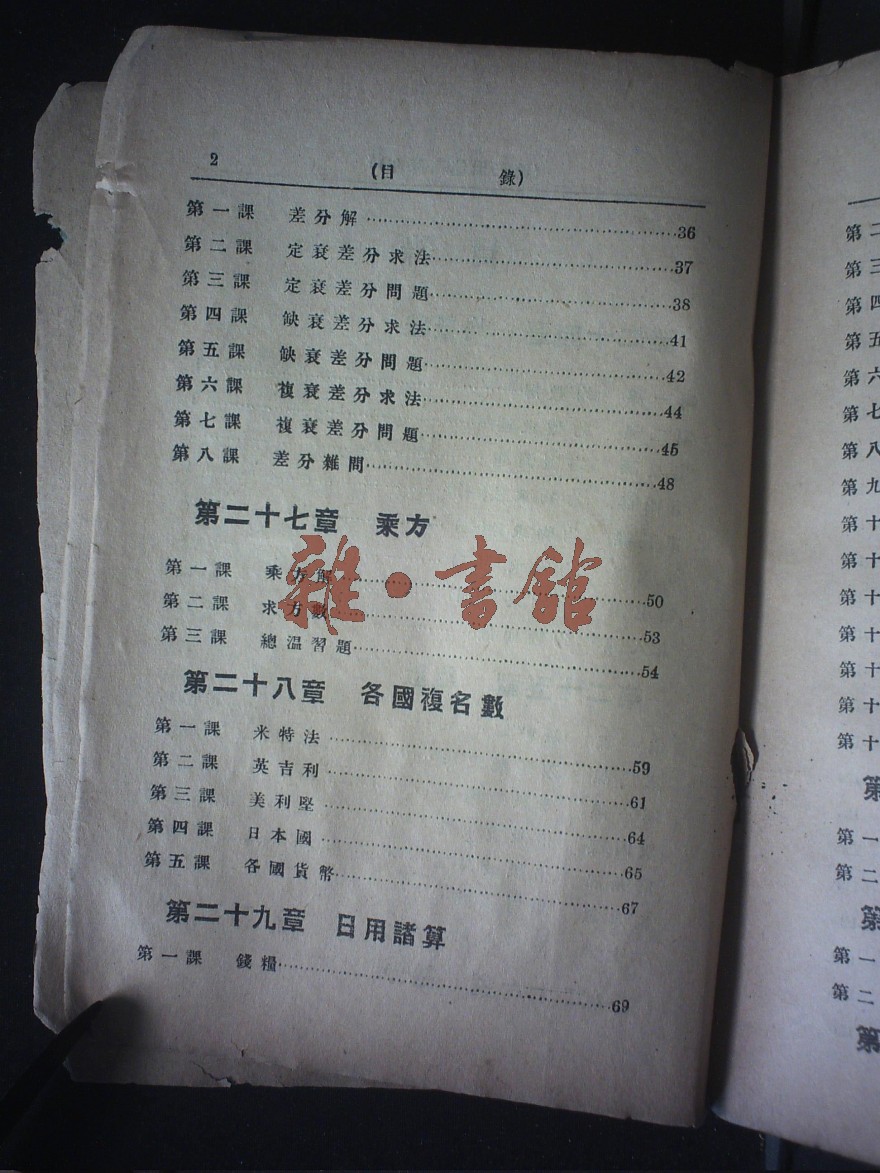 2
(目 錄)
第一課 差分解 36
第二課 定衰差分求法 37
第三課 定衰差分問題 38
第四課 缺衰差分求法 41
第五課 缺衰差分問題 42
第六課 複衰差分求法 44
第七課 複衰差分問題 45
第八課 差分雜問 48
第二十七章 乘方
第一課 乘方解 50
第二課 求方數 53
第三課 總温習題 54
第二十八章 各國複名數
第一課 米特法 59
第二課 英吉利 61
第三課 美利堅 64
第四課 日本國 65
第五課 各國貨幣 67
第二十九章 日用諸算
第一課 錢糧 69
雜·書館
第二
第三
第四
第五
第六
第七
第八
第九
第十
第十
第十
第十
第十
第十
第十
第
第一
第二
第
第一
第二
第